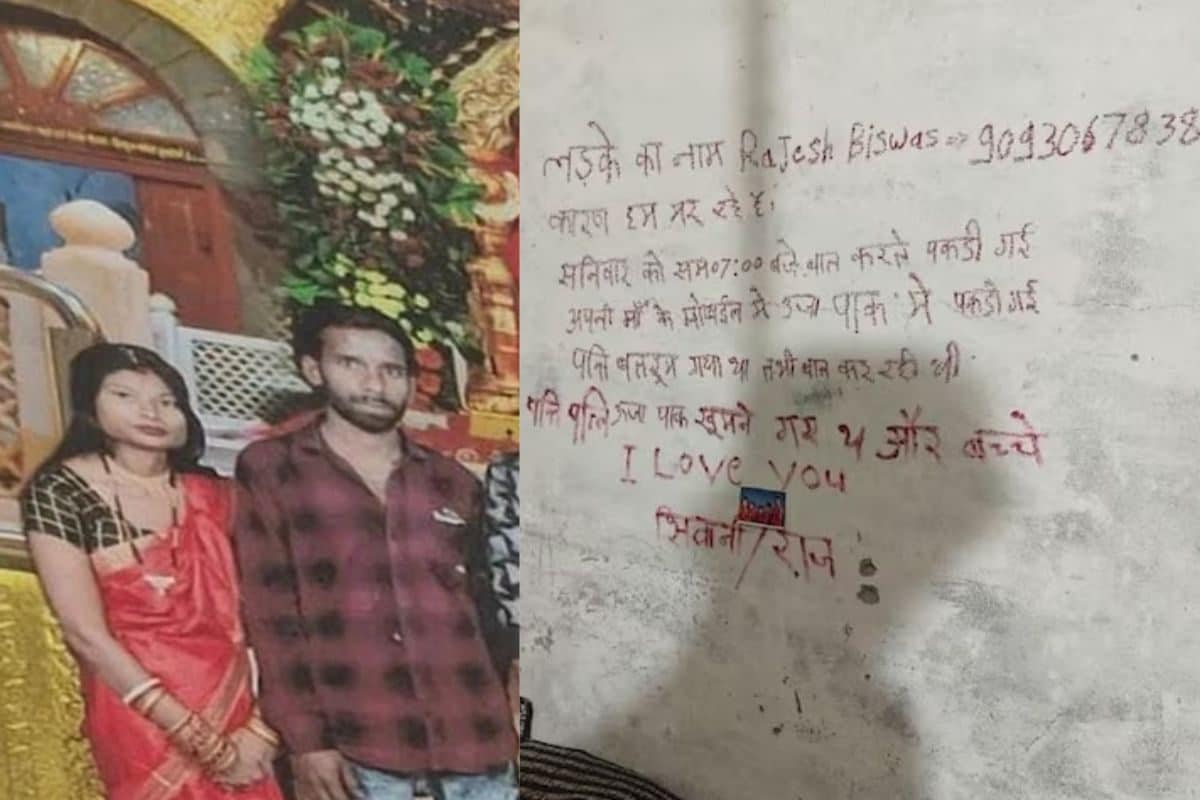 लड़के का नाम RaJesh Biswas => 9093067838
कारण हम मर रहे हैं।
सनिवार को सम 07:00 बजे बात करते पकडी गई
अपनी माँ के मोबाईल मे उर्जा पाक मे पकडी गई
पति बातरूम गया था तभी बात कर रही थी
पति पत्नि उर्जा पाक घूमने गए थ और बच्चे
I Love You
शिवानी/राज